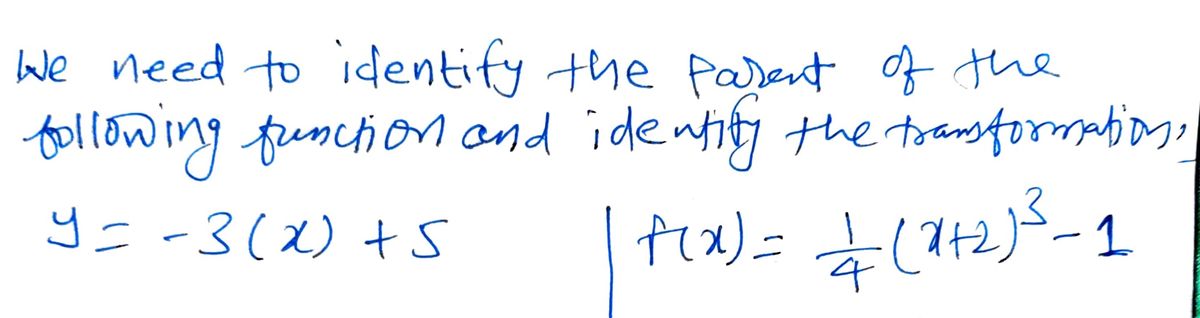 We need to identify the parent of the
following function and identify the transformations,
y = -3(x) + 5 | f(x) = 1/4 (x+2)³ - 1